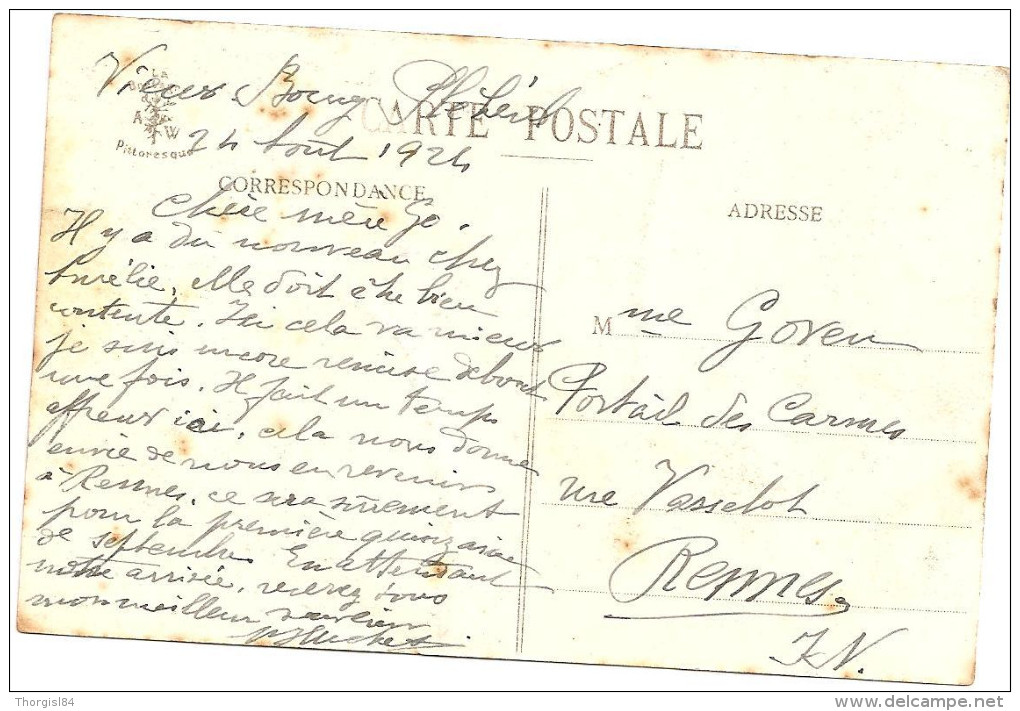 Vieux Bourg Pléhérel
24 Aout 1924
LA
A W
Pittoresque
CARTE POSTALE
CORRESPONDANCE
Chère mère Go.
Il y a du nouveau chez
Amélie, elle doit être bien
contente. Ici cela va mieux
je suis encore remise debout
une fois. Il fait un temps
affreux ici, cela nous donne
envie de nous en revenir
à Rennes, ce sera sûrement
pour la première quinzaine
de septembre. En attendant
notre arrivée, recevez tous
mon meilleur souvenir
ADRESSE
Mme Goven
Portail des Carmes
rue Vasselot
Rennes
I.V.
Thorgisl84
www.delcampe.net